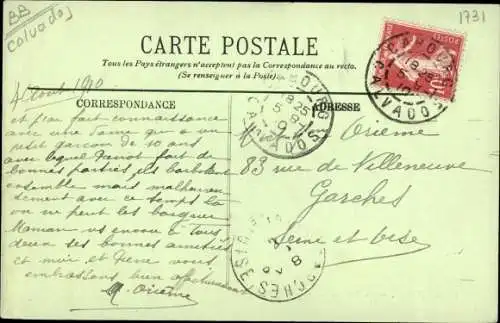 BB
Calvados
1731
CARTE POSTALE
Tous les Pays étrangers n'acceptent pas la Correspondance au recto.
(Se renseigner à la Poste)
CORRESPONDANCE
ADRESSE
CABOURG
CALVADOS
4 Aout 1910
et j'ai fait connaissance
avec une Dame qui a un
petit garçon de 10 ans
avec lequel fait de
bonnes parties
ensemble mais malheureu
sement avec ce temps là
on ne peut les
Maman vs envoie à Tous
deux ses bonnes amitiés
et moi et vous
embrassons bien affectueusement
Orième
Orième
83 rue de Villeneuve
Garches
Seine et Oise